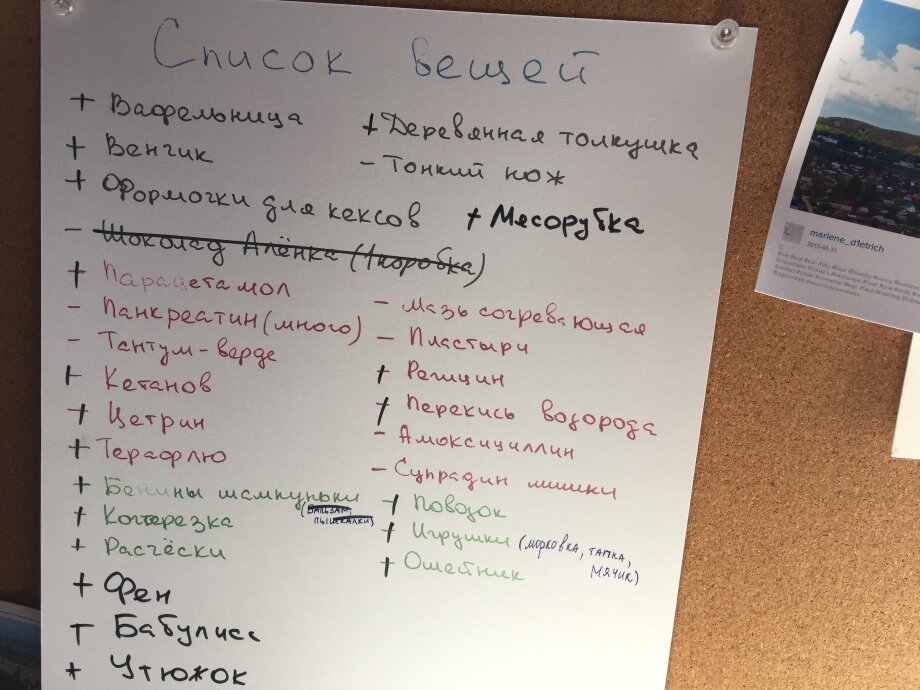 Список вещей
+ Вафельница
+ Венчик
+ Формочки для кексов
- Шоколад Алёнка (1 коробка)
+ Деревянная толкушка
- Тонкий нож
+ Мясорубка
+ Парацетамол
- Панкреатин (много)
- Тантум-верде
+ Кетанов
+ Цетрин
+ Терафлю
- Мазь согревающая
- Пластыри
+ Регицин
+ Перекись водорода
- Амоксициллин
- Супрадин мишки
+ Бенины шампуньки
(бальзам,
пышкалки)
+ Когтерезка
+ Расчёски
+ Поводок
+ Игрушки (морковка, тапка,
мячик)
+ Ошейник
+ Фен
+ Бабулисс
+ Утюжок
marlene_d1etrich
2015-05-31